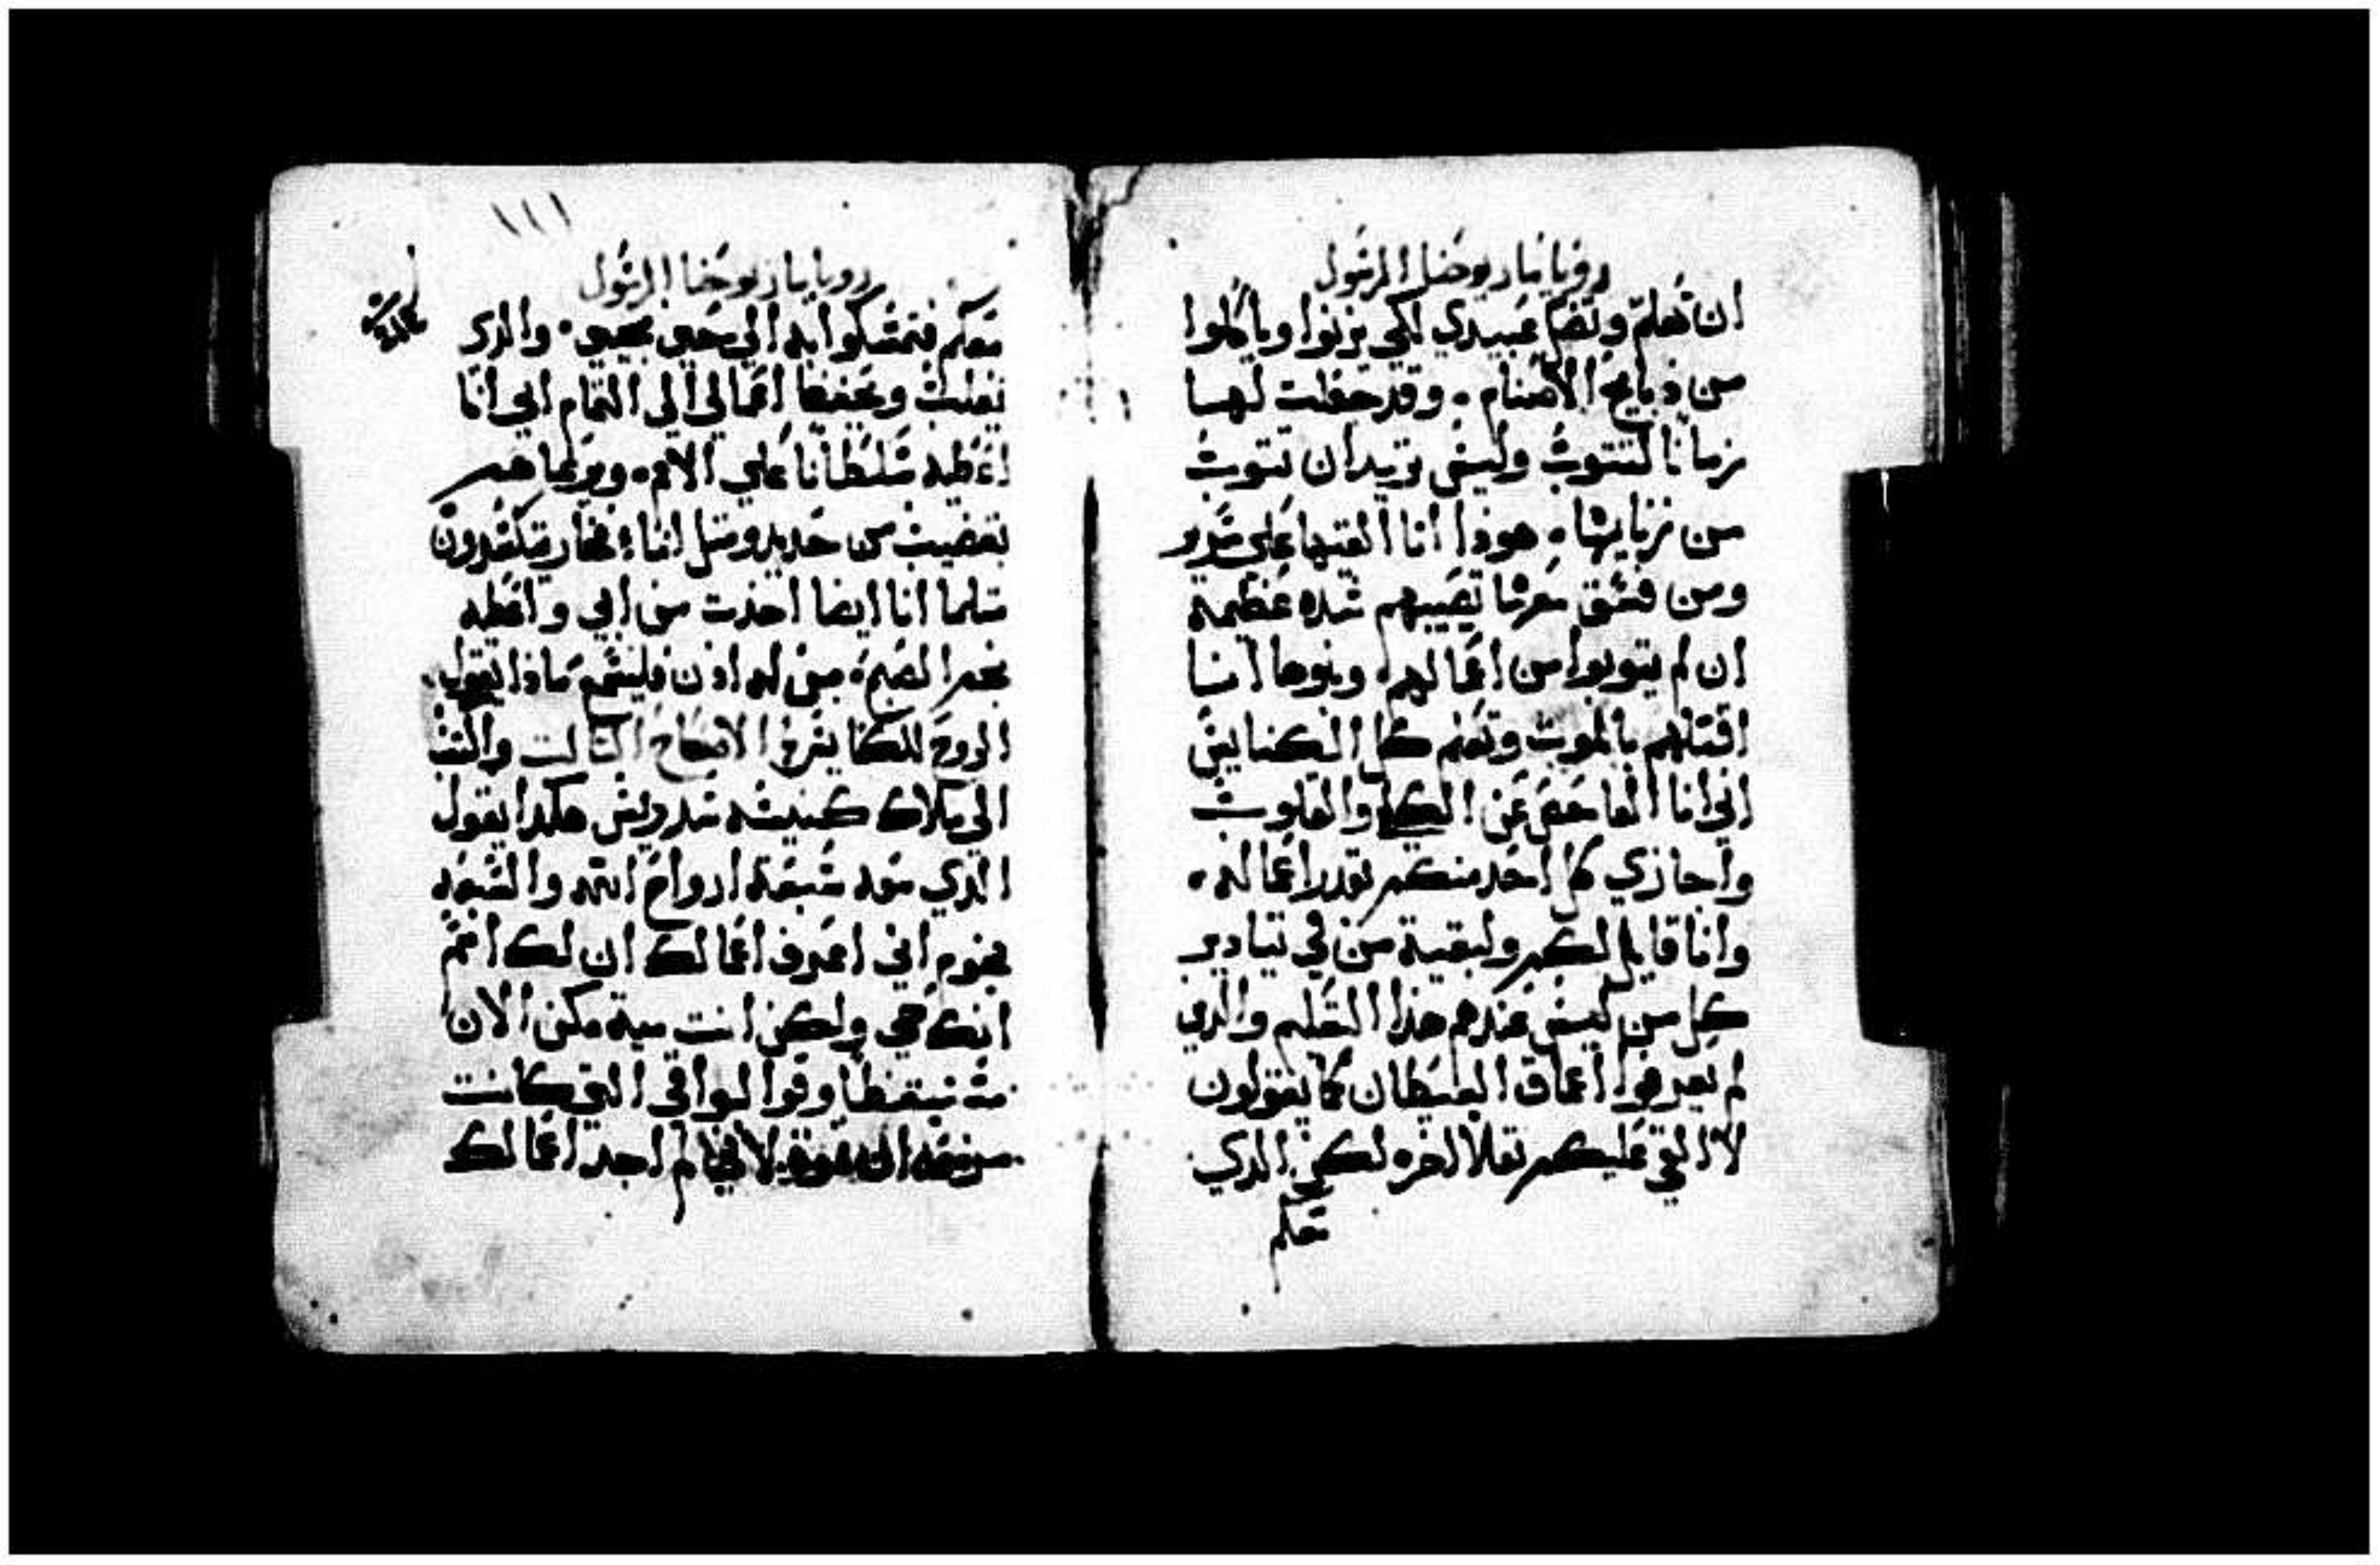 رويا مار يوحنا الرسول
ان تعلم وتضل عبيدي لكي يزنوا وياكلوا
من ذبايح الاصنام . وقد جعلت لها
زمانا لتتوب وليس تريد ان تتوب
من زناها . هوذا انا القيها علي سرير
ومن فسق معها تصيبهم شده عظيمة
ان لم يتوبوا من اعمالهم
اقتلهم بالموت وتعلم كل الكنايس
اني انا الفاحص عن الكلا والقلوب
واجازي كل احد منكم بقدر اعماله .
وانا قايل لكم ولبقية من في تيادير
كل من ليس عندهم هذا التعليم والدي
لم يعرفوا اعماق الشيطان كما يقولون
لا القي عليكم تقلا اخره لكن الدي
معكم
١١١
رويا مار يوحنا الرسول
معكم فتمسكوا به الي حين مجيي . والدي
يغلب ويحفظ اعمالي الي التمام اني انا
اعطيه سلطانا علي الامم . ويرعاهم
بقضيب من حديد ومتل اناء فخار
متلما انا ايضا اخذت من ابي واعطيه
نجم الصبح من له اذن فليسمع ماذا يقول
الروح للكنايس الاصحاح التالت واكتب
الي ملاك كنيسه سرديس هكدا يقول
الدي معه سبعة ارواح الله والسبعه
نجوم اني اعرف اعمالك ان لك اسم
انك حي ولكن انت ميت الان
متيقظا وقوا البواقي التي كانت
لاني لم اجد اعمالك